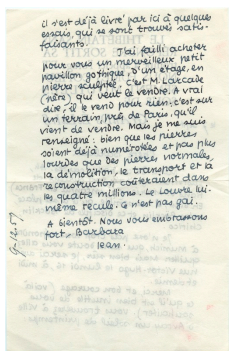 il s'est déjà livré par ici à quelques
essais, qui se sont trouvés satis-
faisants.
J'ai failli acheter
pour vous un merveilleux petit
pavillon gothique, d'un étage, en
pierre sculptée. C'est M. Larcade
(père) qui veut le vendre. A vrai
dire, il le vend pour rien; c'est sur
un terrain, près de Paris, qu'il
vient de vendre. Mais je me suis
renseigné: bien que les pierres
soient déjà numérotées et pas plus
lourdes que des pierres normales,
la démolition, le transport et la
reconstruction coûteraient dans
les quatre millions. Le Louvre lui-
même recule. Ce n'est pas gai.
A bientôt. Nous vous embrassons
fort. Barbara
Jean.